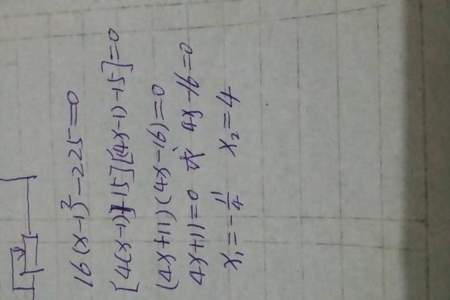 16(x-1)²-225=0
[4(x-1)+15][(4x-1)-15]=0
(4x+11)(4x-16)=0
4x+11=0 或 4x-16=0
x₁=-11/4 x₂=4